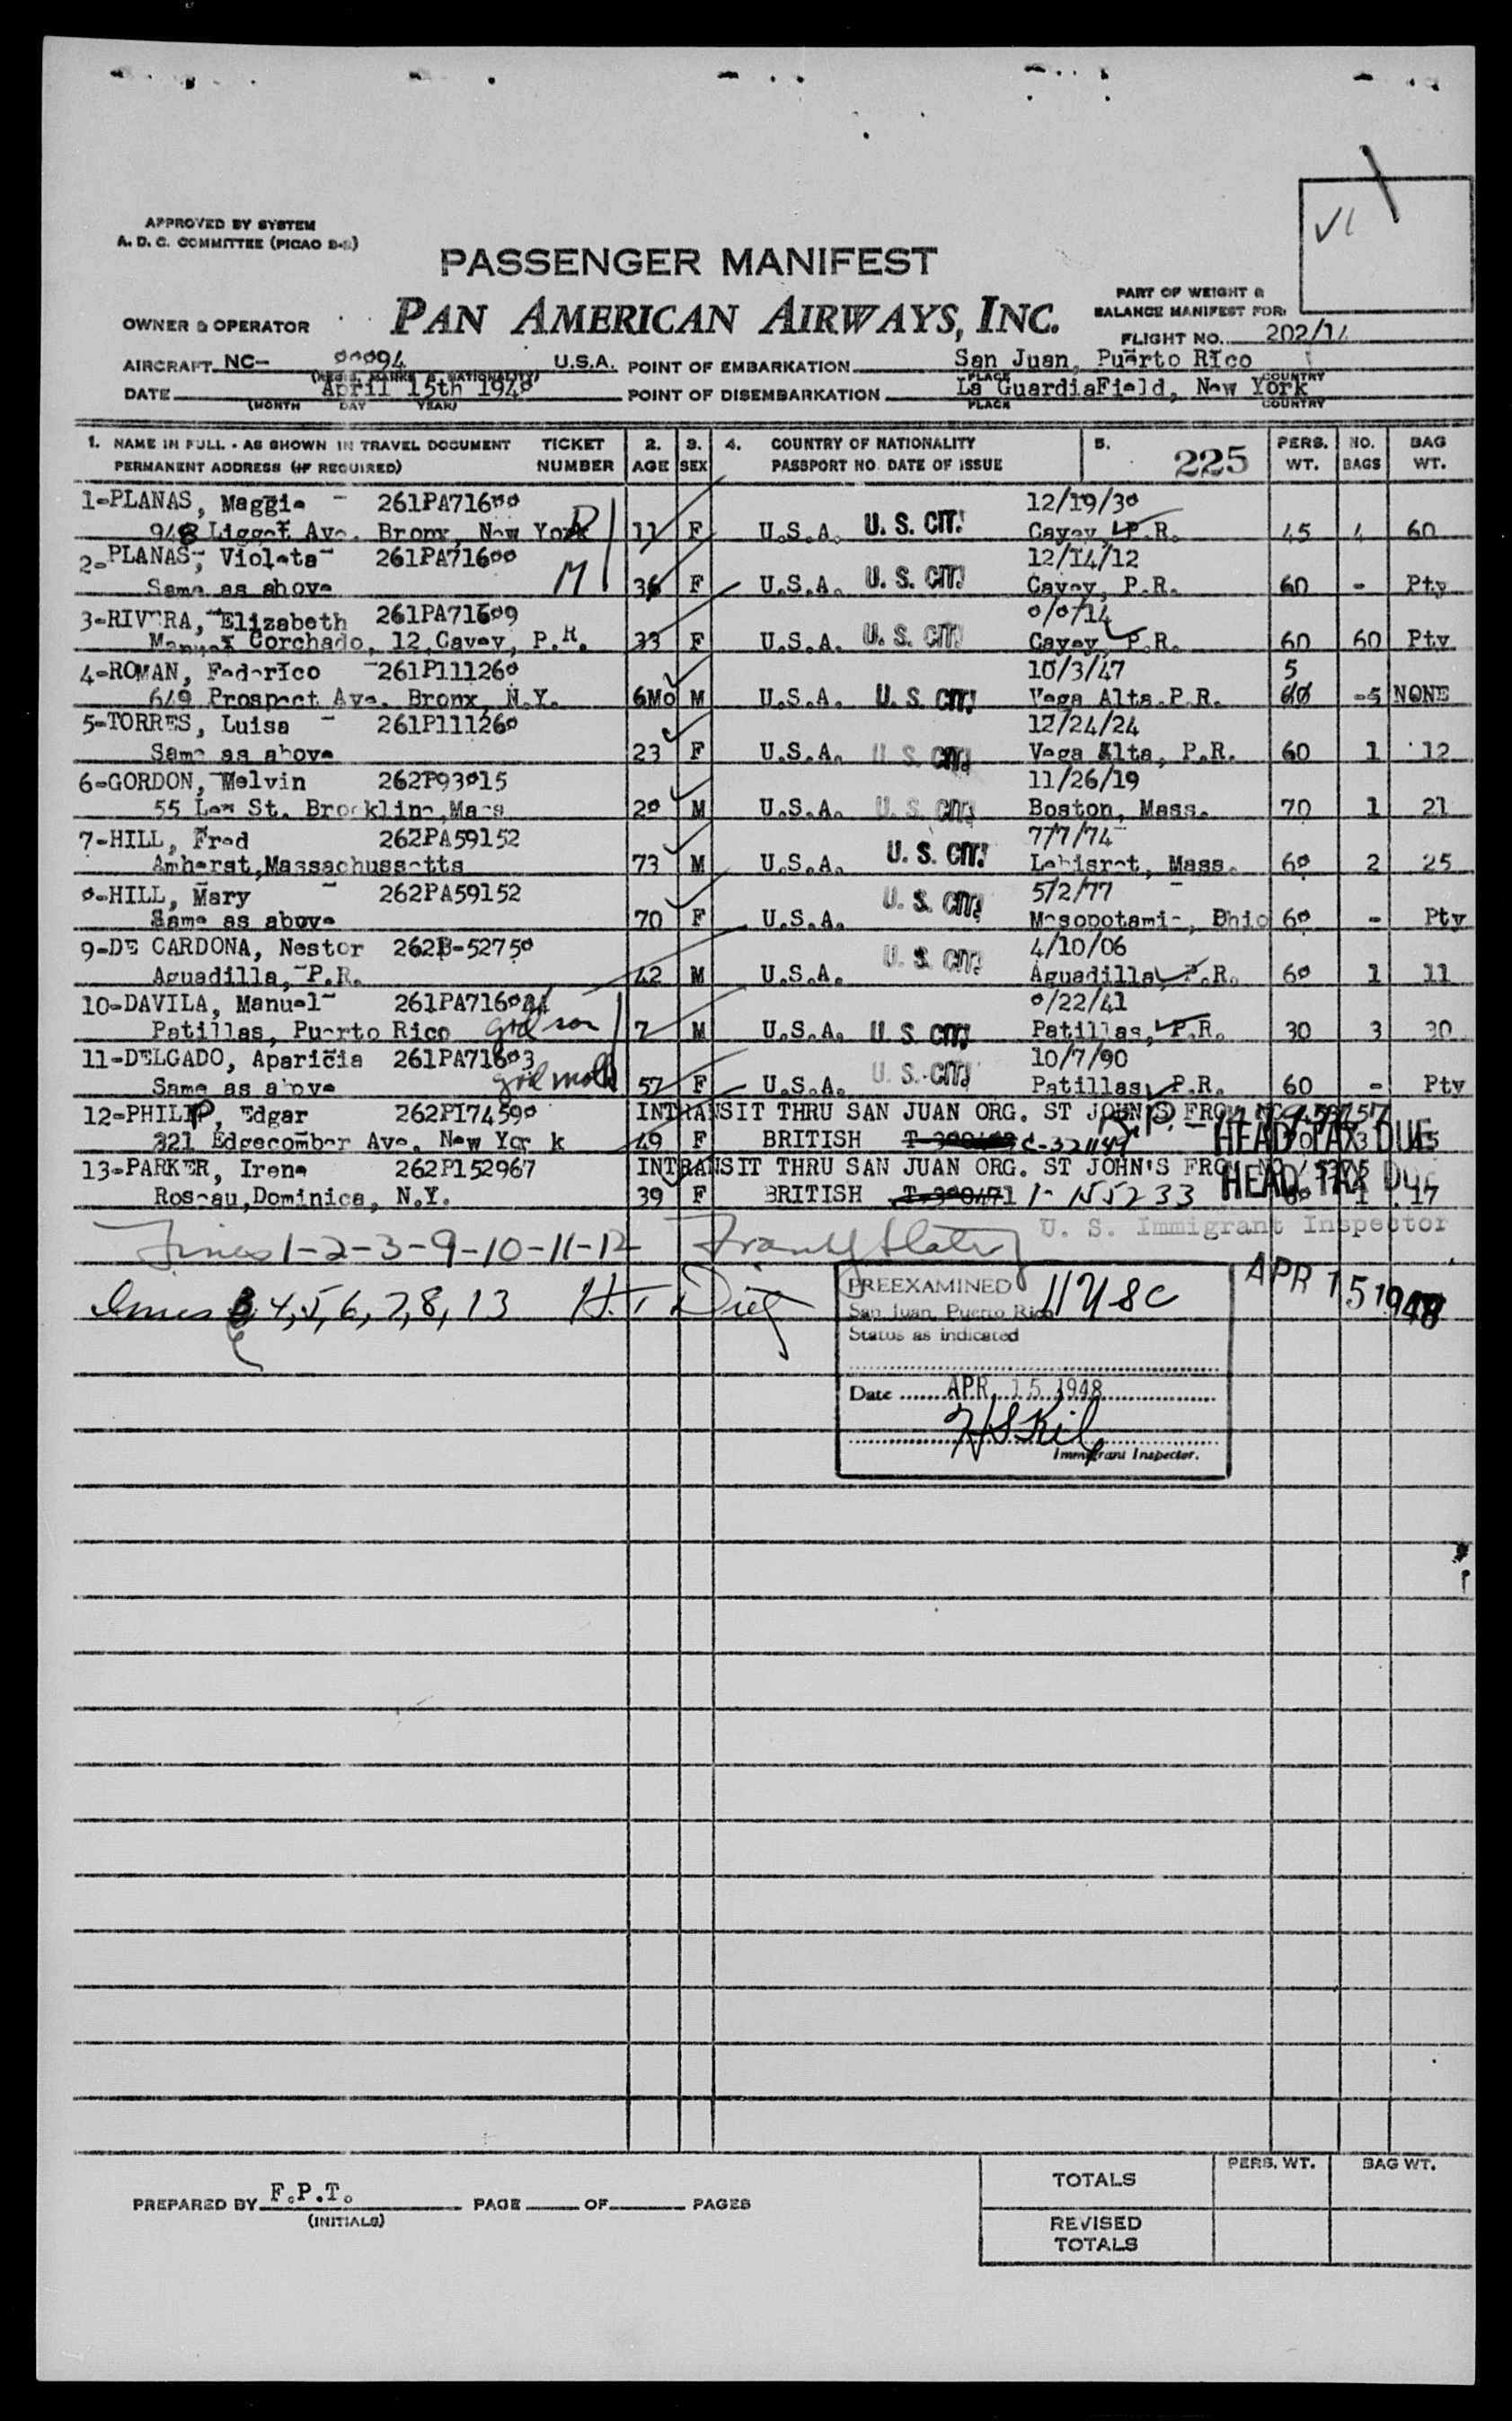 APPROVED BY SYSTEM
A. D. C. COMMITTEE (PICAO
PASSENGER MANIFEST
PAN AMERICAN AIRWAYS, INC.
PART OF WEIGHT &
BALANCE MANIFEST FOR:
OWNER & OPERATOR
FLIGHT NO. 202/14
AIRCRAFT NC- U.S.A. POINT OF EMBARKATION San Juan, Puerto Rico
(REGIS. MARKS & NATIONALITY) PLACE COUNTRY
DATE April 15th 1948 POINT OF DISEMBARKATION La GuardiaField, New York
(MONTH DAY YEAR) PLACE COUNTRY
1. NAME IN FULL - AS SHOWN IN TRAVEL DOCUMENT TICKET 2. 3. 4. COUNTRY OF NATIONALITY 5. 225 PERS. NO. BAG
PERMANENT ADDRESS (IF REQUIRED) NUMBER AGE SEX PASSPORT NO. DATE OF ISSUE WT. BAGS WT.
1-PLANAS, Maggie 261PA71600 12/19/30
948 Ligget Ave. Bronx, New York 11 F U.S.A. U. S. CIT. Cayey, P.R. 45 4 60
2-PLANAS, Violeta 261PA71600 12/14/12
Same as above M 36 F U.S.A. U. S. CIT. Cayey, P.R. 60 - Pty
3-RIVERA, Elizabeth 261PA71609
Corchado, 12, Cayey, P.R. 33 F U.S.A. U. S. CIT. Cayey, P.R. 60 60 Pty
4-ROMAN, Federico 261P111260 10/3/47 5
649 Prospect Ave. Bronx, N.Y. 6Mo M U.S.A. U. S. CIT. Vega Alta P.R. 60 -5 NONE
5-TORRES, Luisa 261P111260 12/24/24
Same as above 23 F U.S.A. U. S. CIT. Vega Alta, P.R. 60 1 12
6-GORDON, Melvin 262P93015 11/26/19
55 St. Brookline, Mass 28 M U.S.A. U. S. CIT. Boston, Mass. 70 1 21
7-HILL, Fred 262PA59152 7/7/74
Amherst,Massachussetts 73 M U.S.A. U. S. CIT. Mass. 60 2 25
8-HILL, Mary 262PA59152 5/2/77
Same as above 70 F U.S.A. U. S. CIT. Mesopotamia, Ohio 60 - Pty
9-DE CARDONA, Nestor 262B-52750 4/10/06
Aguadilla, P.R. 42 M U.S.A. U. S. CIT. Aguadilla, P.R. 60 1 11
10-DAVILA, Manuel
Patillas, Puerto Rico god son 7 M U.S.A. U. S. CIT. Patillas, P.R. 30 3 30
11-DELGADO, Aparicia 261PA71603 10/7/90
Same as above god moth 57 F U.S.A. U. S. CIT. Patillas, P.R. 60 - Pty
12-PHILIP, Edgar 262P174590 INTRANSIT THRU SAN JUAN ORG. ST JOHN'S
321 Edgecomber Ave. New Yor k 49 F BRITISH HEAD TAX DUE
13-PARKER, Irene 262P152967 INTRANSIT THRU SAN JUAN ORG. ST JOHN'S
Roseau,Dominica, N.Y. 39 F BRITISH HEAD TAX DUE 17
U. S. Immigrant Inspector
1-2-3-9-10-11-12
4,5,6,7,8,13
APR 15 1948
PREEXAMINED 11 USC
San Juan, Puerto Rico
Status as indicated
Date APR. 15 1948
Immigrant Inspector.
PREPARED BY F.P.T. PAGE OF PAGES
(INITIALS)
PERS. WT. BAG WT.
TOTALS
REVISED
TOTALS